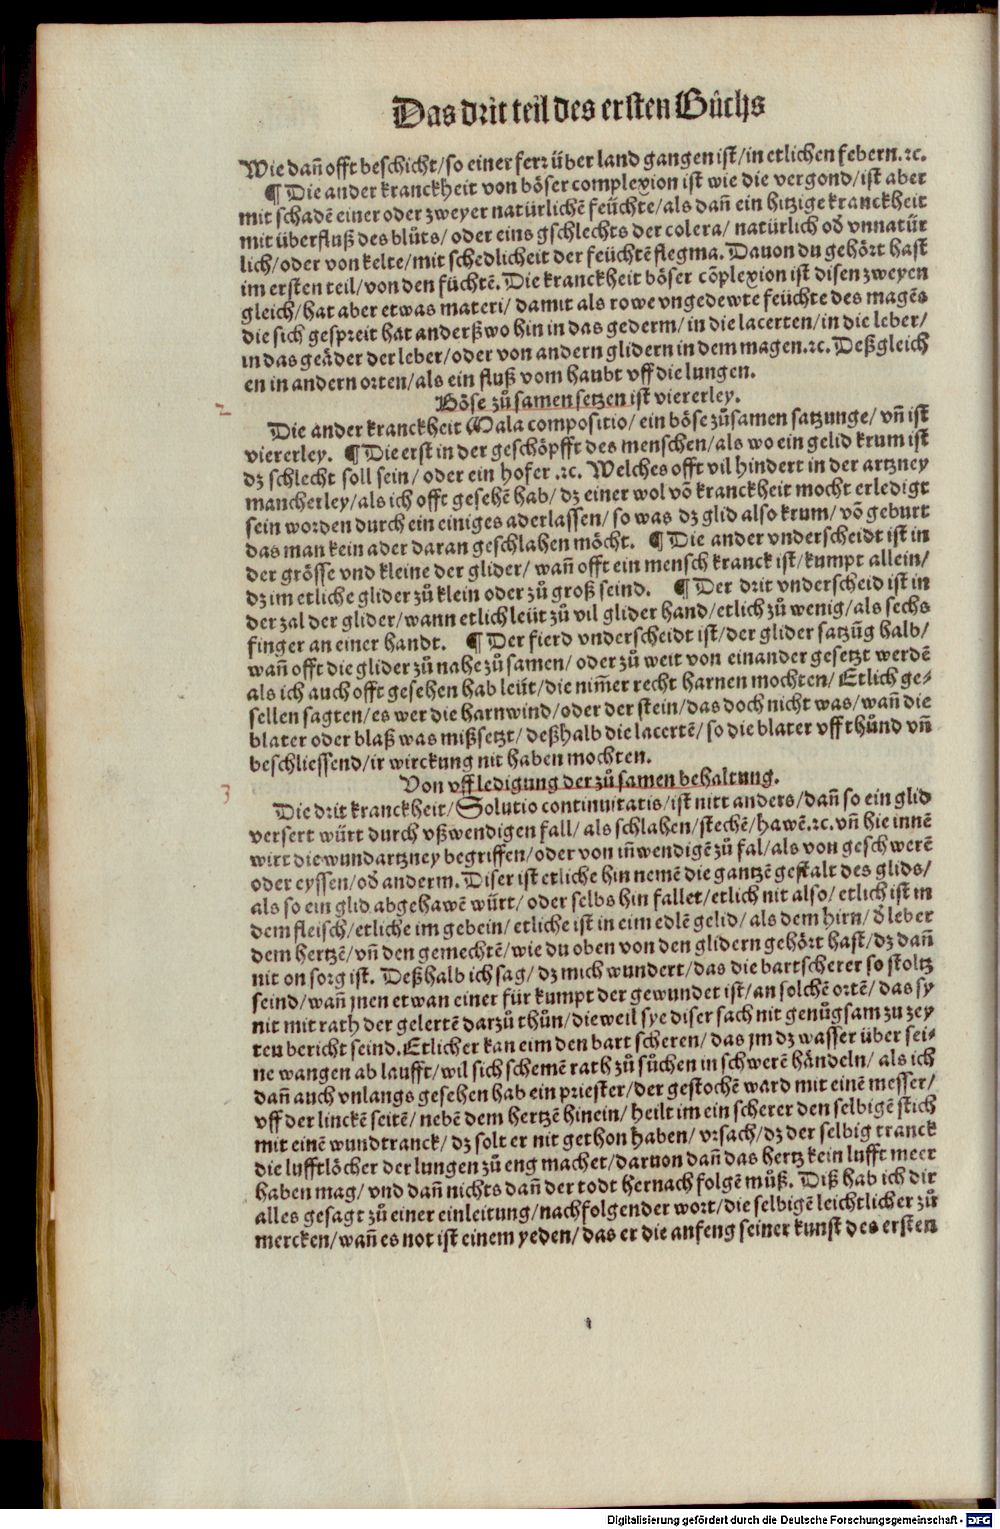 Das drit teil des ersten Bůchs
Wie dañ offt beschicht/so einer ferr über land gangen ist/in etlichen febern.ꝛc.
¶ Die ander kranckheit von böser complexion ist wie die vergond/ist aber
mit schadē einer oder zweyer natürlichē feüchte/als dañ ein hitzige kranckheit
mit überfluß des blůts/oder eins gschlechts der colera/ natürlich od̕ vnnatür
lich/oder von kelte/mit schedlicheit der feüchtē flegma. Dauon du gehört hast
im ersten teil/von den füchtē. Die kranckheit böser cōplexion ist disen zweyen
gleich/hat aber etwas materi/ damit als rowe vngedewte feüchte des magēs
die sich gespreit hat anderßwo hin in das gederm/in die lacerten/in die leber/
in das geäder der leber/oder von andern glidern in dem magen.ꝛc. Deßgleich
en in andern orten/als ein fluß vom haubt vff die lungen.
2 Böse zůsamen setzen ist viererley.
Die ander kranckheit Mala compositio/ein böse zůsamen satzunge/ vñ ist
viererley. ¶ Die erst in der geschöpfft des menschen/als wo ein gelid krum ist
dz schlecht soll sein/oder ein hofer.ꝛc. Welches offt vil hindert in der artzney
mancherley/als ich offt gesehē hab/dz einer wol vō kranckheit mocht erledigt
sein worden durch ein einiges aderlassen/so was dz glid also krum/vō geburt
das man kein ader daran geschlahen möcht. ¶ Die ander vnderscheidt ist in
der grösse vnd kleine der glider/wañ offt ein mensch kranck ist/kumpt allein/
dz im etliche glider zů klein oder zů groß seind. ¶ Der drit vnderscheid ist in
der zal der glider/wann etlich leüt zů vil glider hand/etlich zů wenig/als sechs
finger an einer handt. ¶ Der fierd vnderscheidt ist/der glider satzūg halb/
wañ offt die glider zů nahe zůsamen/oder zů weit von einander gesetzt werdē
als ich auch offt gesehen hab leüt/die nim̃er recht harnen mochten/Etlich ge⸗
sellen sagten/es wer die harnwind/oder der stein/das doch nicht was/wañ die
blater oder blaß was mißsetzt/deßhalb die lacertē/so die blater vff thůnd vñ
beschliessend/ir wirckung nit haben mochten.
3 Von vffledigung der zůsamen behaltung.
Die drit kranckheit/Solutio continuitatis/ist nitt anders/dañ so ein glid
versert würt durch vßwendigen fall/als schlahen/stechē/hawē.ꝛc.vñ hie innē
wirt die wundartzney begriffen/oder von iñwendigē zů fal/als von geschwerē
oder eyssen/od̕ anderm. Diser ist etliche hin nemē die gantzē gestalt des glids/
als so ein glid abgehawē würt/oder selbs hin fallet/etlich nit also/etlich ist in
dem fleisch/etliche im gebein/etliche ist in eim edlē gelid/als dem hirn/d̕ leber
dem hertzē/vñ den gemechtē/wie du oben von den glidern gehört hast/dz dañ
nit on sorg ist. Deßhalb ich sag/dz mich wundert/das die bartscherer so stoltz
seind/wañ jnen etwan einer für kumpt der gewundet ist/an solchē ortē/das sy
nit mit rath der gelertē darzů thůn/dieweil sye diser sach nit genůgsam zu zey
ten bericht seind.Etlicher kan eim den bart scheren/das jm dz wasser über sei⸗
ne wangen ab laufft/wil sich schemē rath zů sůchen in schwerē händeln/als ich
dañ auch vnlangs gesehen hab ein priester/der gestochē ward mit einē messer/
vff der linckē seitē/nebē dem hertzē hinein/heilt im ein scherer den selbigē stich
mit einē wundtranck/dz solt er nit gethon haben/vrsach/dz der selbig tranck
die lufftlöcher der lungen zů eng machet/daruon dañ das hertz kein lufft meer
haben mag/vnd dañ nichts dañ der todt hernach folgē můß. Diß hab ich dir
alles gesagt zů einer einleitung/nachfolgender wort/die selbigē leichtlicher zů
mercken/wañ es not ist einem yeden/das er die anfeng seiner kunst des ersten
Digitalisierung gefördert durch die Deutsche Forschungsgemeinschaft - DFG